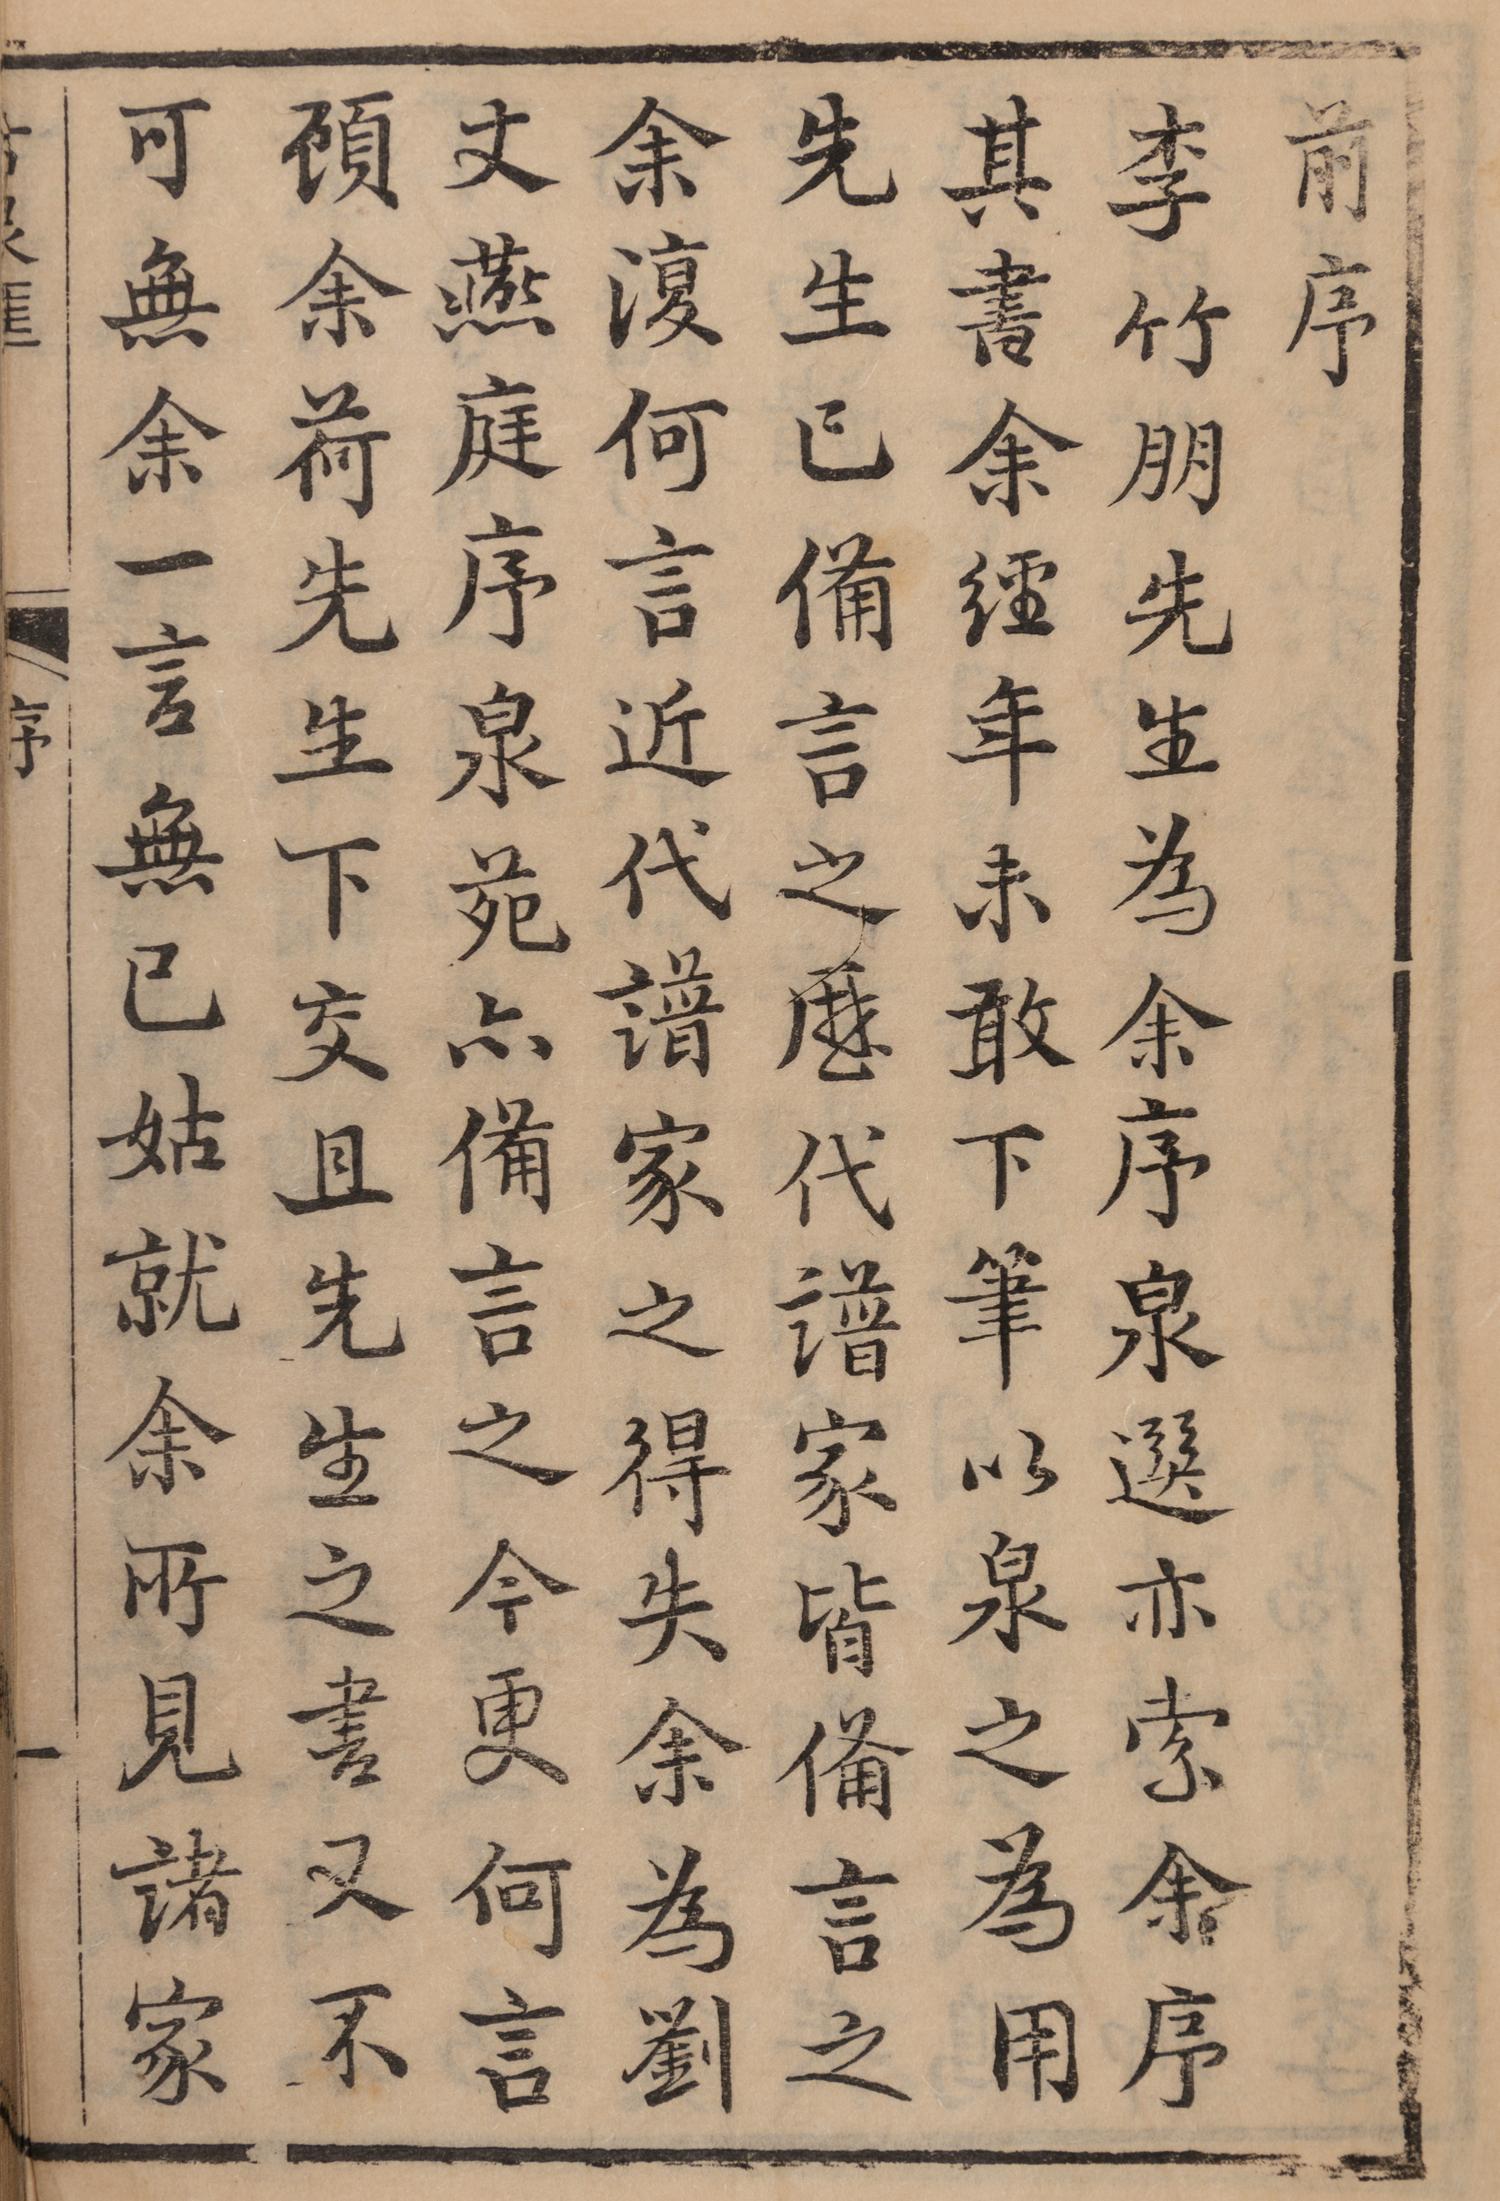 前序
李竹朋先生為余序泉選亦索余序
其書余經年未敢下筆以泉之為用
先生已備言之歷代譜家皆備言之
余復何言近代譜家之得失余為劉
丈燕庭序泉苑亦備言之今更何言
顧余荷先生下交且先生之書又不
可無余一言無已姑就余所見諸家
序
一